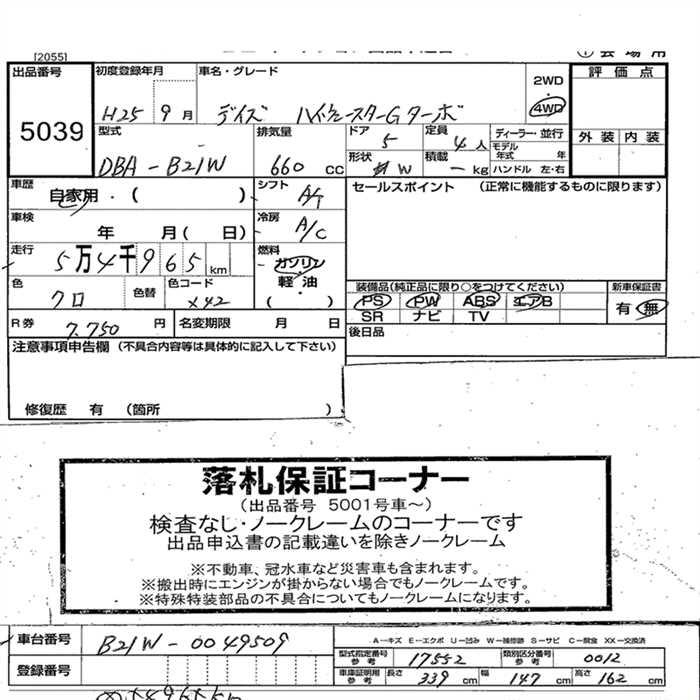 [2055]
①会場用
出品番号
5039
初度登録年月
H25 9月
車名・グレード
デイズ ハイウェースターGターボ
2WD
4WD
評価点
外装 内装
型式
DBA-B21W
排気量
660 cc
ドア 5
定員 4人
形状 W
積載 - kg
ディーラー・並行
モデル年式 年
ハンドル 左・右
車歴
自家用・( )
シフト A/T
車検
年 月( 日)
冷房 A/C
走行
5万4千965km
燃料
ガソリン
軽油
( )
色 クロ
色替
色コード X42
R券 7.750円
名変期限 月 日
セールスポイント (正常に機能するものに限ります)
装備品(純正品に限り○をつけてください)
PS PW ABS エアB
SR ナビ TV
新車保証書
有・無
後日品
注意事項申告欄 (不具合内容等は具体的に記入して下さい)
修復歴 有 (箇所 )
落札保証コーナー
(出品番号 5001号車～)
検査なし・ノークレームのコーナーです
出品申込書の記載違いを除きノークレーム
※不動車、冠水車など災害車も含まれます。
※搬出時にエンジンが掛からない場合でもノークレームです。
※特殊特装部品の不具合についてもノークレームになります。
車台番号
B21W-0049509
登録番号
A－キズ E－エクボ U－凹み W－補修跡 S－サビ C－腐食 XX－交換済
型式指定番号 参考 17552
類別区分番号 参考 0012
車庫証明用 参考 長さ 339 cm 幅 147 cm 高さ 162 cm